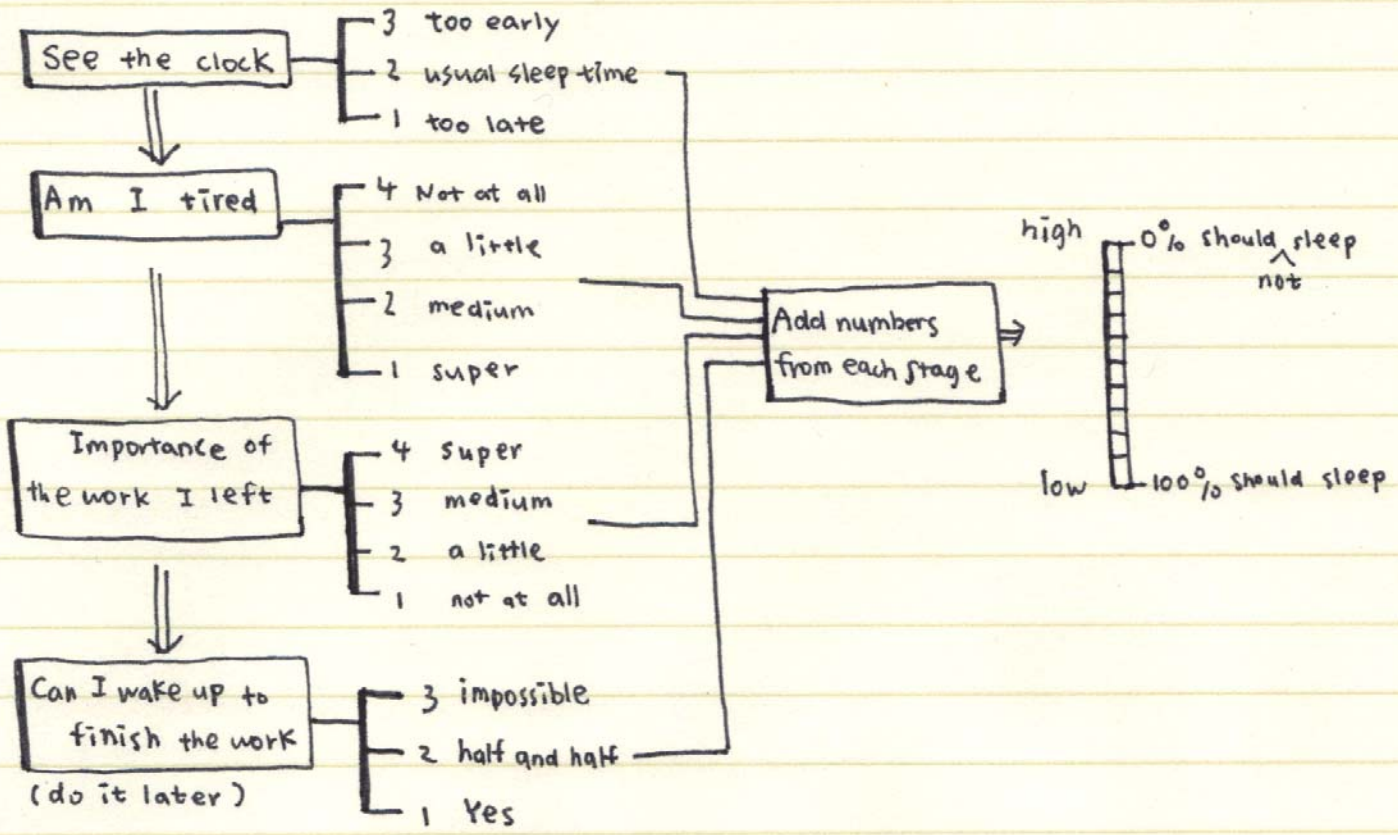 See the clock
3 too early
2 usual sleep time
1 too late
Am I tired
4 Not at all
3 a little
2 medium
1 super
Importance of
the work I left
4 super
3 medium
2 a little
1 not at all
Can I wake up to
finish the work
(do it later)
3 impossible
2 half and half
1 Yes
Add numbers
from each stage
high
0% should sleep
not
low
100% should sleep